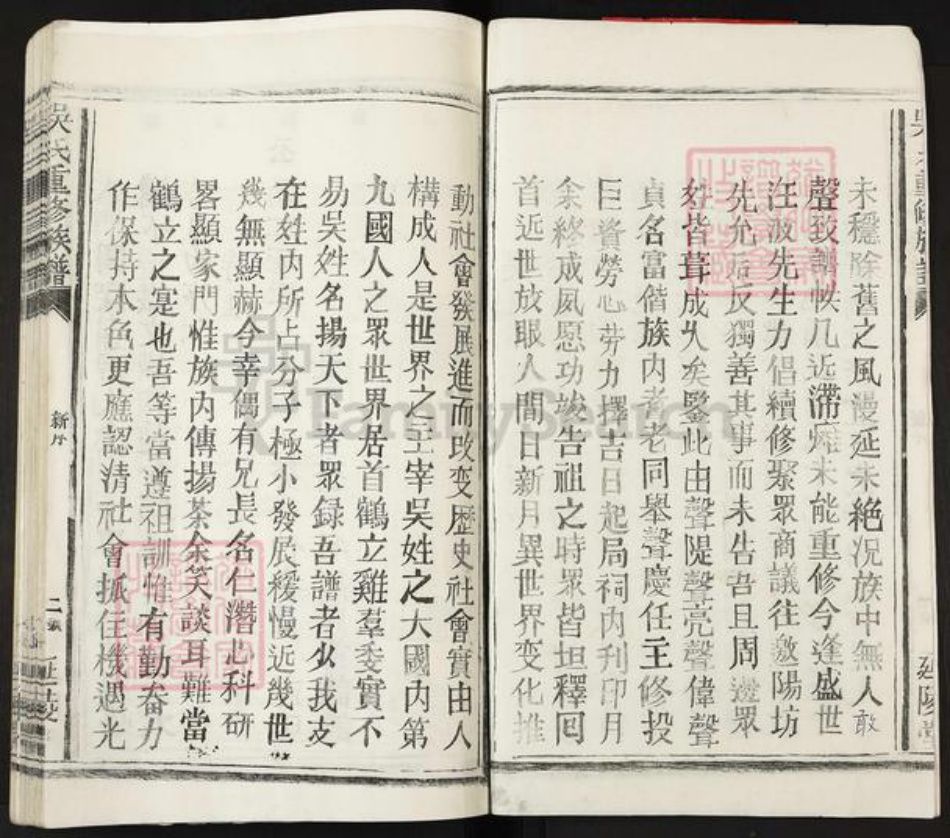 未穩除舊之風漫延未絕况族中無人敢
聲致譜帙几近滯瘫未能重修今逢盛世
汪波先生力倡續修聚眾商議往邀陽坊
先允后反獨善其事而未告吾且周邊眾
姓皆葺成久矣鑒此由聲隄聲亮聲偉聲
貞名富偕族内老老同舉聲慶任主修投
巨資勞心劳力擇吉日起局祠内刋印月
余終成夙愿功竣告祖之時眾皆坦釋囘
首近世放眼人間日新月異世界变化推
動社會發展進而改变歷史社會實由人
構成人是世界之主宰吳姓之大國内第
九國人之眾世界居首鶴立雞羣委實不
易吳姓名揚天下者眾録吾譜者少我支
在姓内所占分子極小發展緩慢近幾世
幾無顯赫今幸偶有兄長名仁濳心科研
畧顯家門惟族内傳揚茶余笑談耳難當
鶴立之寔也吾等當遵祖訓惟有勤奋力
作保持本色更應認清社會抓住機遇光
吳氏重修族譜
新序
二
延陵
FamilySearch